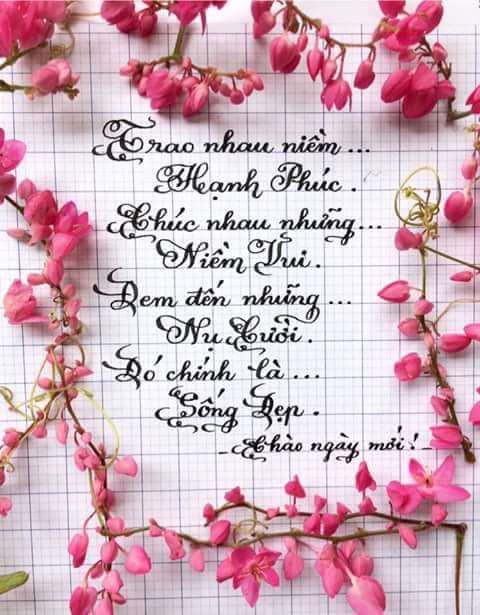 Trao nhau niềm...
Hạnh Phúc.
Chúc nhau những...
Niềm Vui.
Đem đến những...
Nụ Cười.
Đó chính là...
Sống Đẹp.
- Chào ngày mới! -